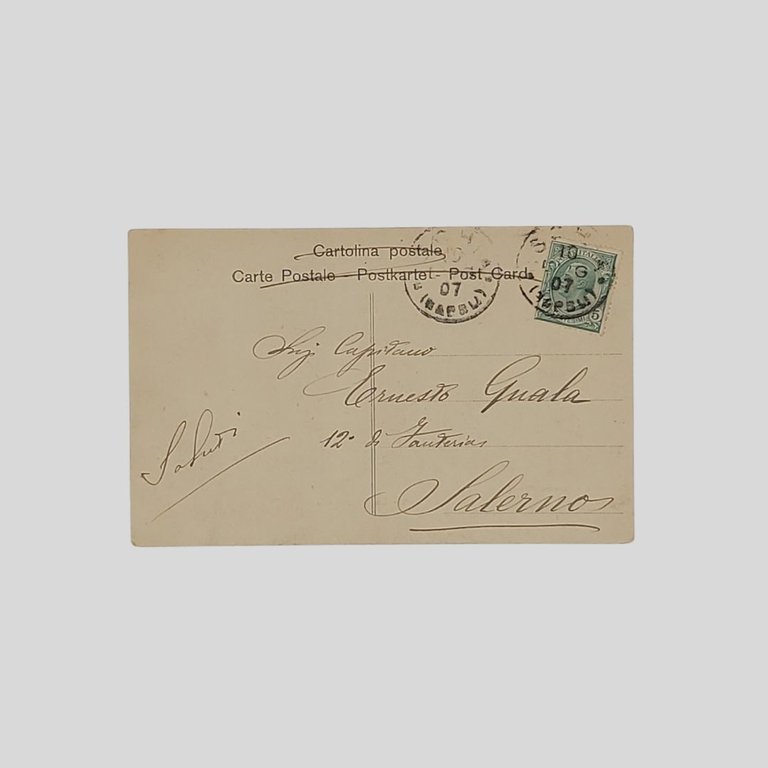 Cartolina postale
Carte Postale - Postkarte - Post Card
10
07
(NAPOLI)
10
07
(NAPOLI)
5
Capitano
Ernesto Guala
12° di Fanteria
Salerno
Saluti